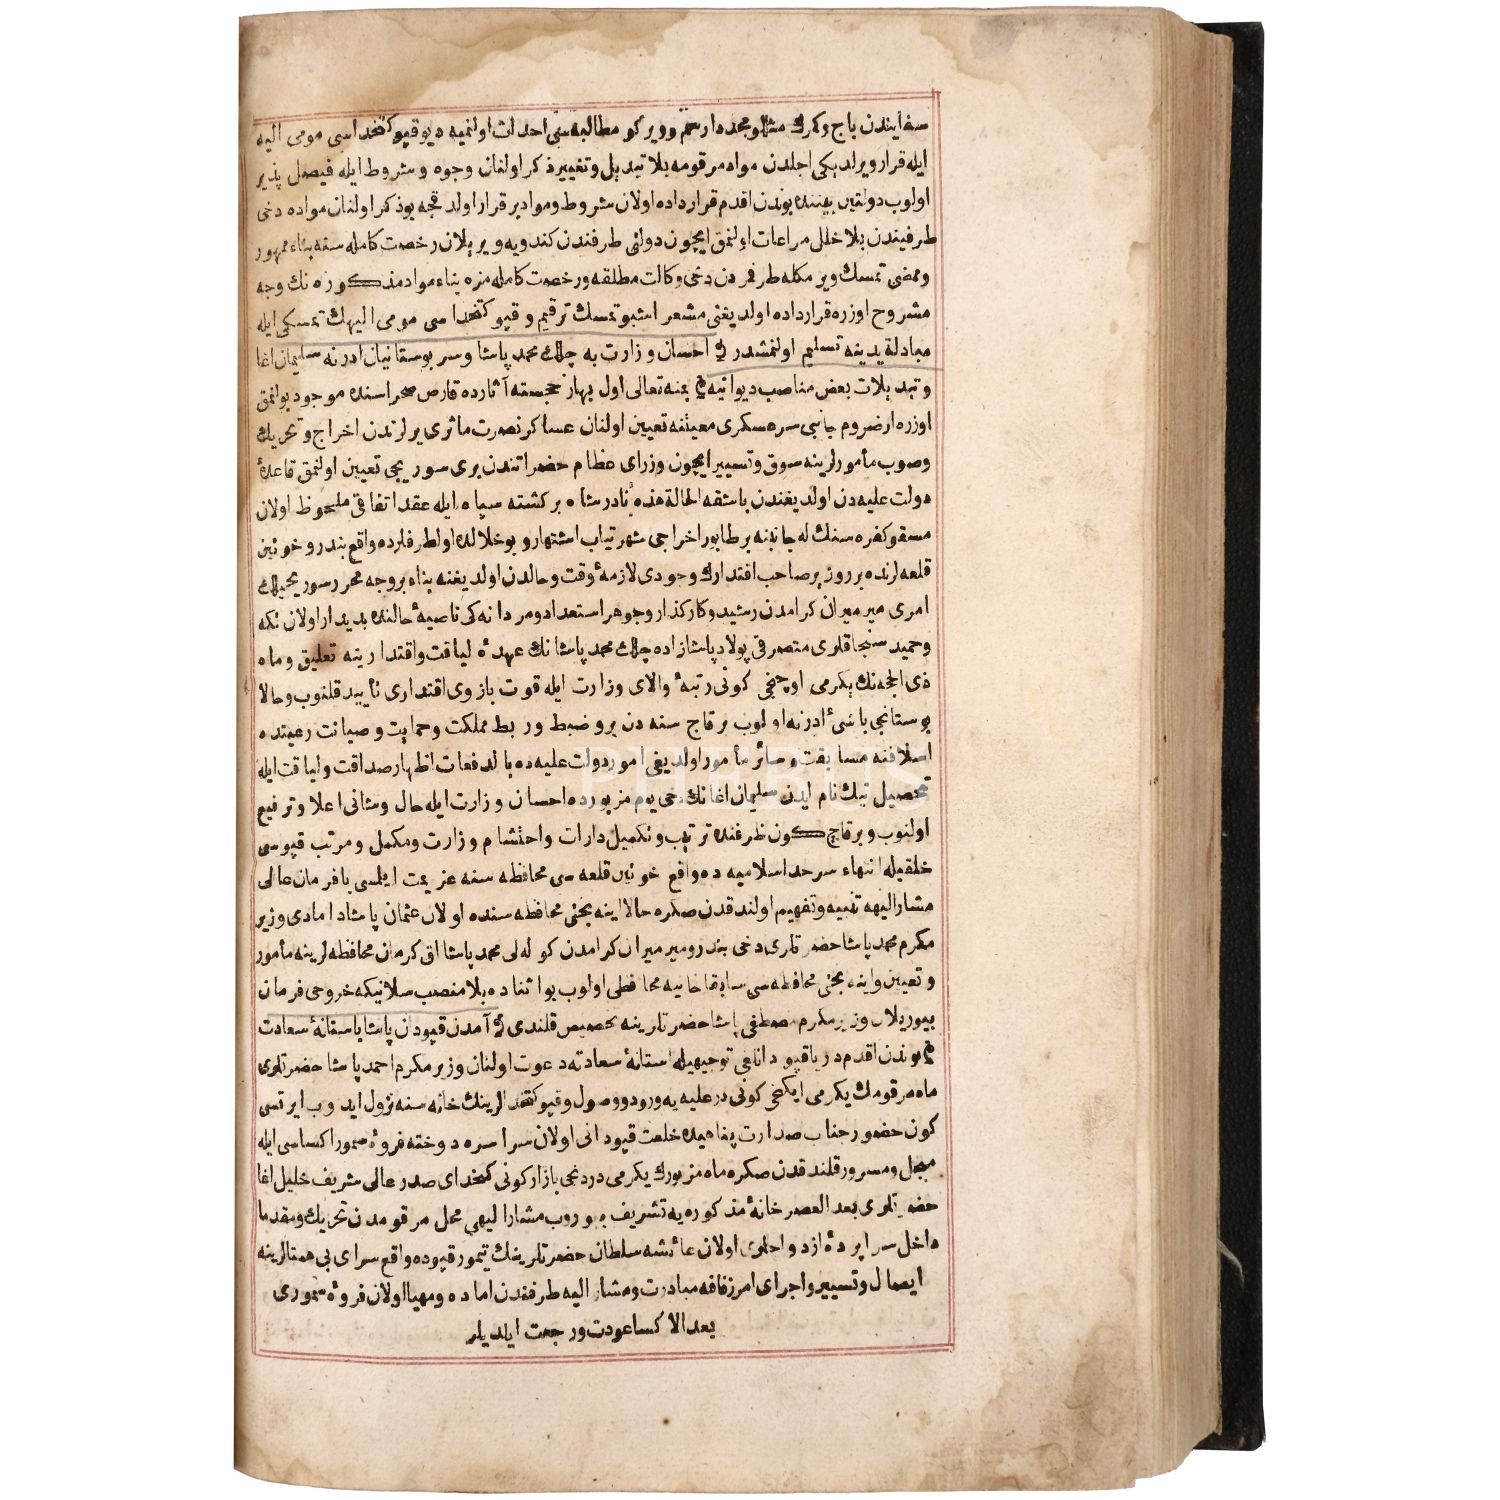 سفايندن باج و كمرك مثللو مجددا رسم و ويركو مطالبه سى احداث اولنميه ديو قپو كتخداسى مومى اليه
ايله قرار ويرلديكى اجلدن مواد مرقومه بلا تبديل و تغيير ذكر اولنان وجوه و شروط ايله فيصل پذير
اولوب دولتين بيننده بوندن اقدم قرارداده اولان شروط و مواد برقرار اولدقجه بو ذكر اولنان مواده دخى
طرفيندن بلا خلل مراعات اولنمق ايچون دولتى طرفندن كندويه ويريلان رخصت كامله سنه بناء ممهور
و ممضى تمسك ويرمكله طرفمردن دخى وكالت مطلقه و رخصت كامله مزه بناء مواد مذكوره نك وجه
مشروح اوزره قرارداده اولديغنى مشعر اشبو تمسك ترقيم و قپو كتخداسى مومى اليهك تمسكى ايله
مبادلة يدينه تسليم اولنمشدر احسان وزارت به چلك محمد پاشا و سر بوستانيان ادرنه سليمان اغا
و تبديلات بعض مناصب ديوانيه بمنه تعالى اول بهار خجسته آثارده قارص صحراسنده موجود بولنمق
اوزره ارضروم جانبى سرعسكرى معيتنه تعيين اولنان عساكر نصرت ماثرى يرلرندن اخراج و تحريك
و صوب مأمورلرينه سوق و تسيير ايچون وزراى عظام حضراتندن برى سوريجى تعيين اولنمق قاعدۀ
دولت عليه دن اولديغندن باشقه الحالة هذه نادر شاه بركشته سپاه ايله عقد اتفاقى ملحوظ اولان
مسقو كفره سنك له جانبنه بر طابور اخراجى شهرتياب اشتهار و بو خلالده اول طرفلرده واقع بندر و خوتين
قلعه لرنده برر وزير صاحب اقتدارك وجودى لازمۀ وقت و حالدن اولديغنه بناء بر وجه محرر سوريجيلك
امرى ميرميران كرامدن رشيد و كاركذار و جوهر استعداد و مردانه كى ناصيۀ حالنده بديدار اولان تكه
و حميد سنجاقلرى متصرفى پولاد پاشازاده چلك محمد پاشانك عهدۀ لياقت و اقتدارينه تعليق و ماه
ذى الحجه نك يكرمى اوچنجى كونى رتبۀ والاى وزارت ايله قوت بازوى اقتدارى تأييد قلنوب و حالا
بوستانجى باشئ ادرنه اولوب برقاج سنه دن برو ضبط و ربط مملكت و حمايت و صيانت رعيتده
اسلافنه مسابقت و سائر مأمور اولديغى امور دولت عليه ده بالدفعات اظهار صداقت و لياقت ايله
تحصيل نيك نام ايدن سليمان اغانك دخى يوم مزبورده احسان وزارت ايله حال و شانى اعلا و ترفيع
اولنوب و برقاج كون ظرفنده ترتيب و تكميل دارات و احتشام وزارت و مكمل و مرتب قپوسى
خلقيله انتهاء سرحد اسلاميه ده واقع خوتين قلعه سى محافظه سنه عزيمت ايلمسى با فرمان عالى
مشار اليهه تنبيه و تفهيم اولندقدن صكره حالا اينه بختى محافظه سنده اولان عثمان پاشا دامادى وزير
مكرم محمد پاشا حضرتلرى دخى بندر و ميرميران كرامدن كوله لى محمد پاشا اق كرمان محافظه لرينه مأمور
و تعيين و اينه بختى محافظه سى سابقا خانيه محافظى اولوب بو اثناده بلا منصب سلانيكه خروجى فرمان
بيوريلان وزير مكرم مصطفى پاشا حضرتلرينه تخصيص قلندى آمدن قپودان پاشا باستانۀ سعادت
بوندن اقدم دريا قپودانلغى توجيهيله استانۀ سعادته دعوت اولنان وزير مكرم احمد پاشا حضرتلرى
ماه مرقومك يكرمى ايكنجى كونى در عليه يه ورود و وصول و قپو كتخدالرينك خانه سنه نزول ايدوب ايرتسى
كون حضور جناب صدارت پناهيده خلعت قپودانى اولان سراسره دوخته فروۀ سمور اكساسى ايله
مبجل و مسرور قلندقدن صكره ماه مزبورك يكرمى دردنجى بازار كونى كتخداى صدر عالى شريف خليل اغا
حضرتلرى بعد العصر خانۀ مذكوره يه تشريف بيوروب مشار اليهى محل مرقومدن تحريك و مقدما
داخل سراپردۀ ازدواجلرى اولان عائشه سلطان حضرتلرينك تيمور قپوده واقع سراى بى همتالرينه
ايصال و تسيير و اجراى امر زفافه مبادرت و مشار اليه طرفندن اماده و مهيا اولان فروۀ سمورى
بعد الاكسا عودت و رجعت ايلديلر
PHEBUS